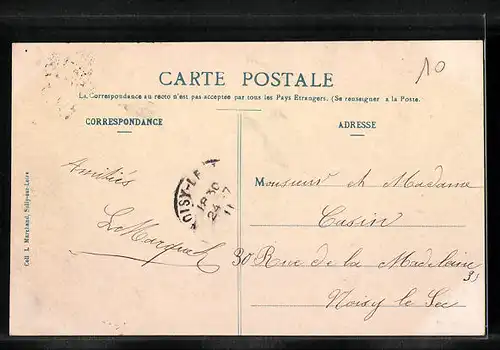 10
CARTE POSTALE
La Correspondance au recto n'est pas acceptée par tous les Pays Etrangers. (Se renseigner à la Poste.
CORRESPONDANCE
ADRESSE
Amitiés
NOISY-LE
18 30
24 7
11
Monsieur et Madame
Casin
30 Rue de la Madelaine
35
Noisy le Sec
Coll. L. Marchand, Sully-sur-Loire